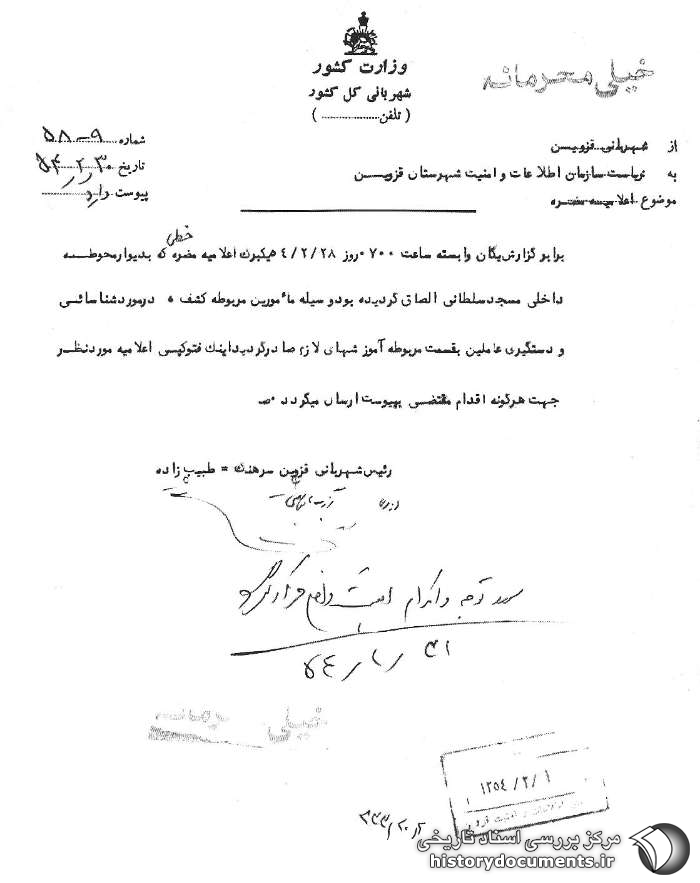 وزارت کشور
شهربانی کل کشور
( تلفن .................... )
خیلی محرمانه
شماره ۹-۵۸
تاریخ ۵۴٫۲٫۳۰
پیوست دارد
از شهربانی قزوین
به ریاست سازمان اطلاعات و امنیت شهرستان قزوین
موضوع اعلامیه مضره
خطی
برابر گزارش یگان وابسته ساعت ۰۷۰۰ روز ۴/۲/۲۸ هیکبرگ اعلامیه مضره که بدیوار محوطه
داخلی مسجد سلطانی الصاق گردیده بود وسیله مأمورین مربوطه کشف ۰ درمورد شناسائی
و دستگیری عاملین بقسمت مربوطه آموزشهای لازم صادر گردید اینک فتوکپی اعلامیه مورد نظر
جهت هرگونه اقدام مقتضی بپیوست ارسال میگردد ۰ ص
رئیس شهربانی قزوین سرهنگ = طبیب زاده
خیلی
۱۳۵۴/۲/
مرکز بررسی اسناد تاریخی
historydocuments.ir